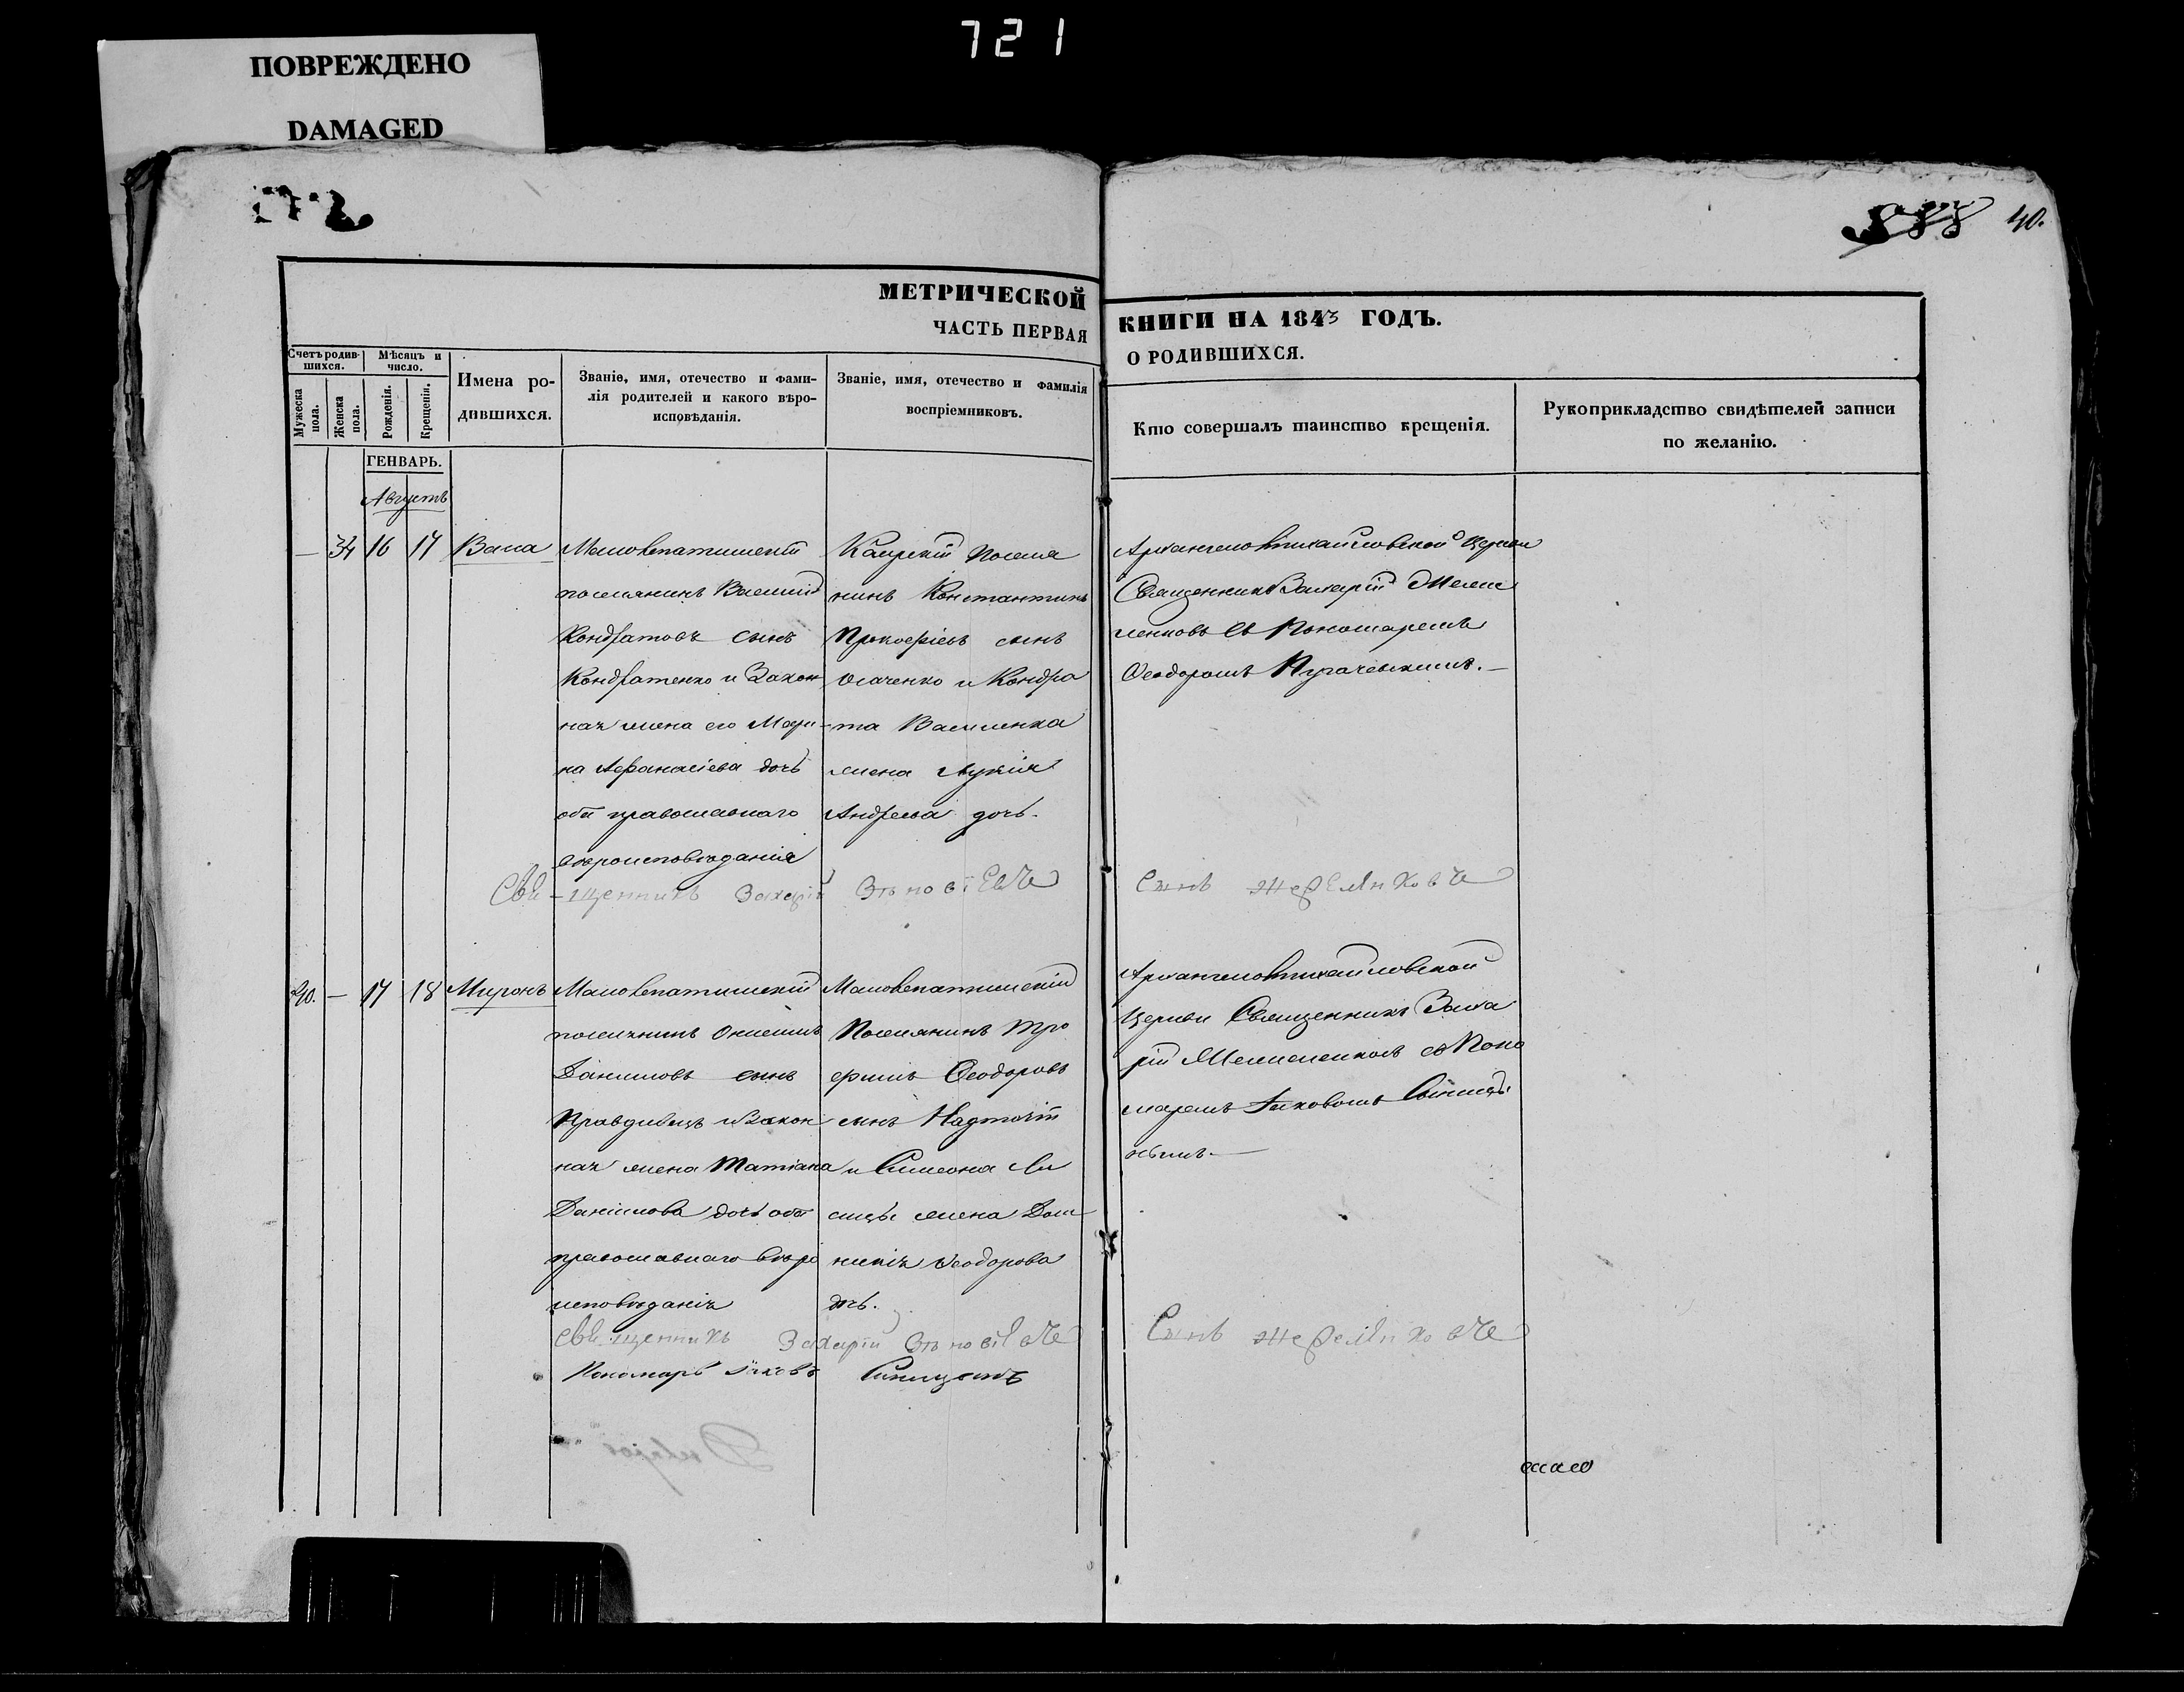 721
ПОВРЕЖДЕНО
DAMAGED
588 40.
МЕТРИЧЕСКОЙ
ЧАСТЬ ПЕРВАЯ
КНИГИ НА 1843 ГОДЪ.
О РОДИВШИХСЯ.
Счетъ родив-
шихся.
Мужеска пола.
Женска пола.
Мѣсяцъ и
число.
Рожденія.
Крещенія.
Имена ро-
дившихся.
Званіе, имя, отечество и фами-
лія родителей и какого вѣро-
исповѣданія.
Званіе, имя, отечество и фамилія
воспріемниковъ.
Кто совершалъ таинство крещенія.
Рукоприкладство свидѣтелей записи
по желанію.
ГЕНВАРЬ.
Августъ
— 34 16 17 Васса
Маловепатишскій
поселянинъ Василій
Кондратовъ сынъ
Кондратенко и Закон
ная жена его Мари-
на Афанасіева дочь
оба православнаго
вѣроисповѣданія
Каирскій поселя
нинъ Константинъ
Прокофіевъ сынъ
Осаченко и Кондра
та Василенка
жена
Андреева дочь.
Архангеломихайловской Церкви
Священникъ Захарій Меле
ленковъ съ Пономаремъ
Ѳеодоромъ Пугачевскимъ.—
Священникъ Захарій Зѣновіевъ
Сынъ
40. — 17 18 Миронъ
Маловепатишскій
поселянинъ Онисимъ
Даниловъ сынъ
Правдивецъ и Закон
ная жена Татіана
Даніилова дочь оба
православнаго вѣро
исповѣданія
Маловепатишскій
Поселянинъ Тро
фимъ Ѳеодоровъ
сынъ Надточій
и Симеона Ли
сицы жена Дом
никія Ѳеодорова
дочь.
Архангеломихайловской
Церкви Священникъ Заха
рій съ Поно
маремъ Іаковомъ Синицы
нымъ—
Священникъ Захарій Зѣновіевъ
Сынъ
Пономарь Іаковъ Синицынъ